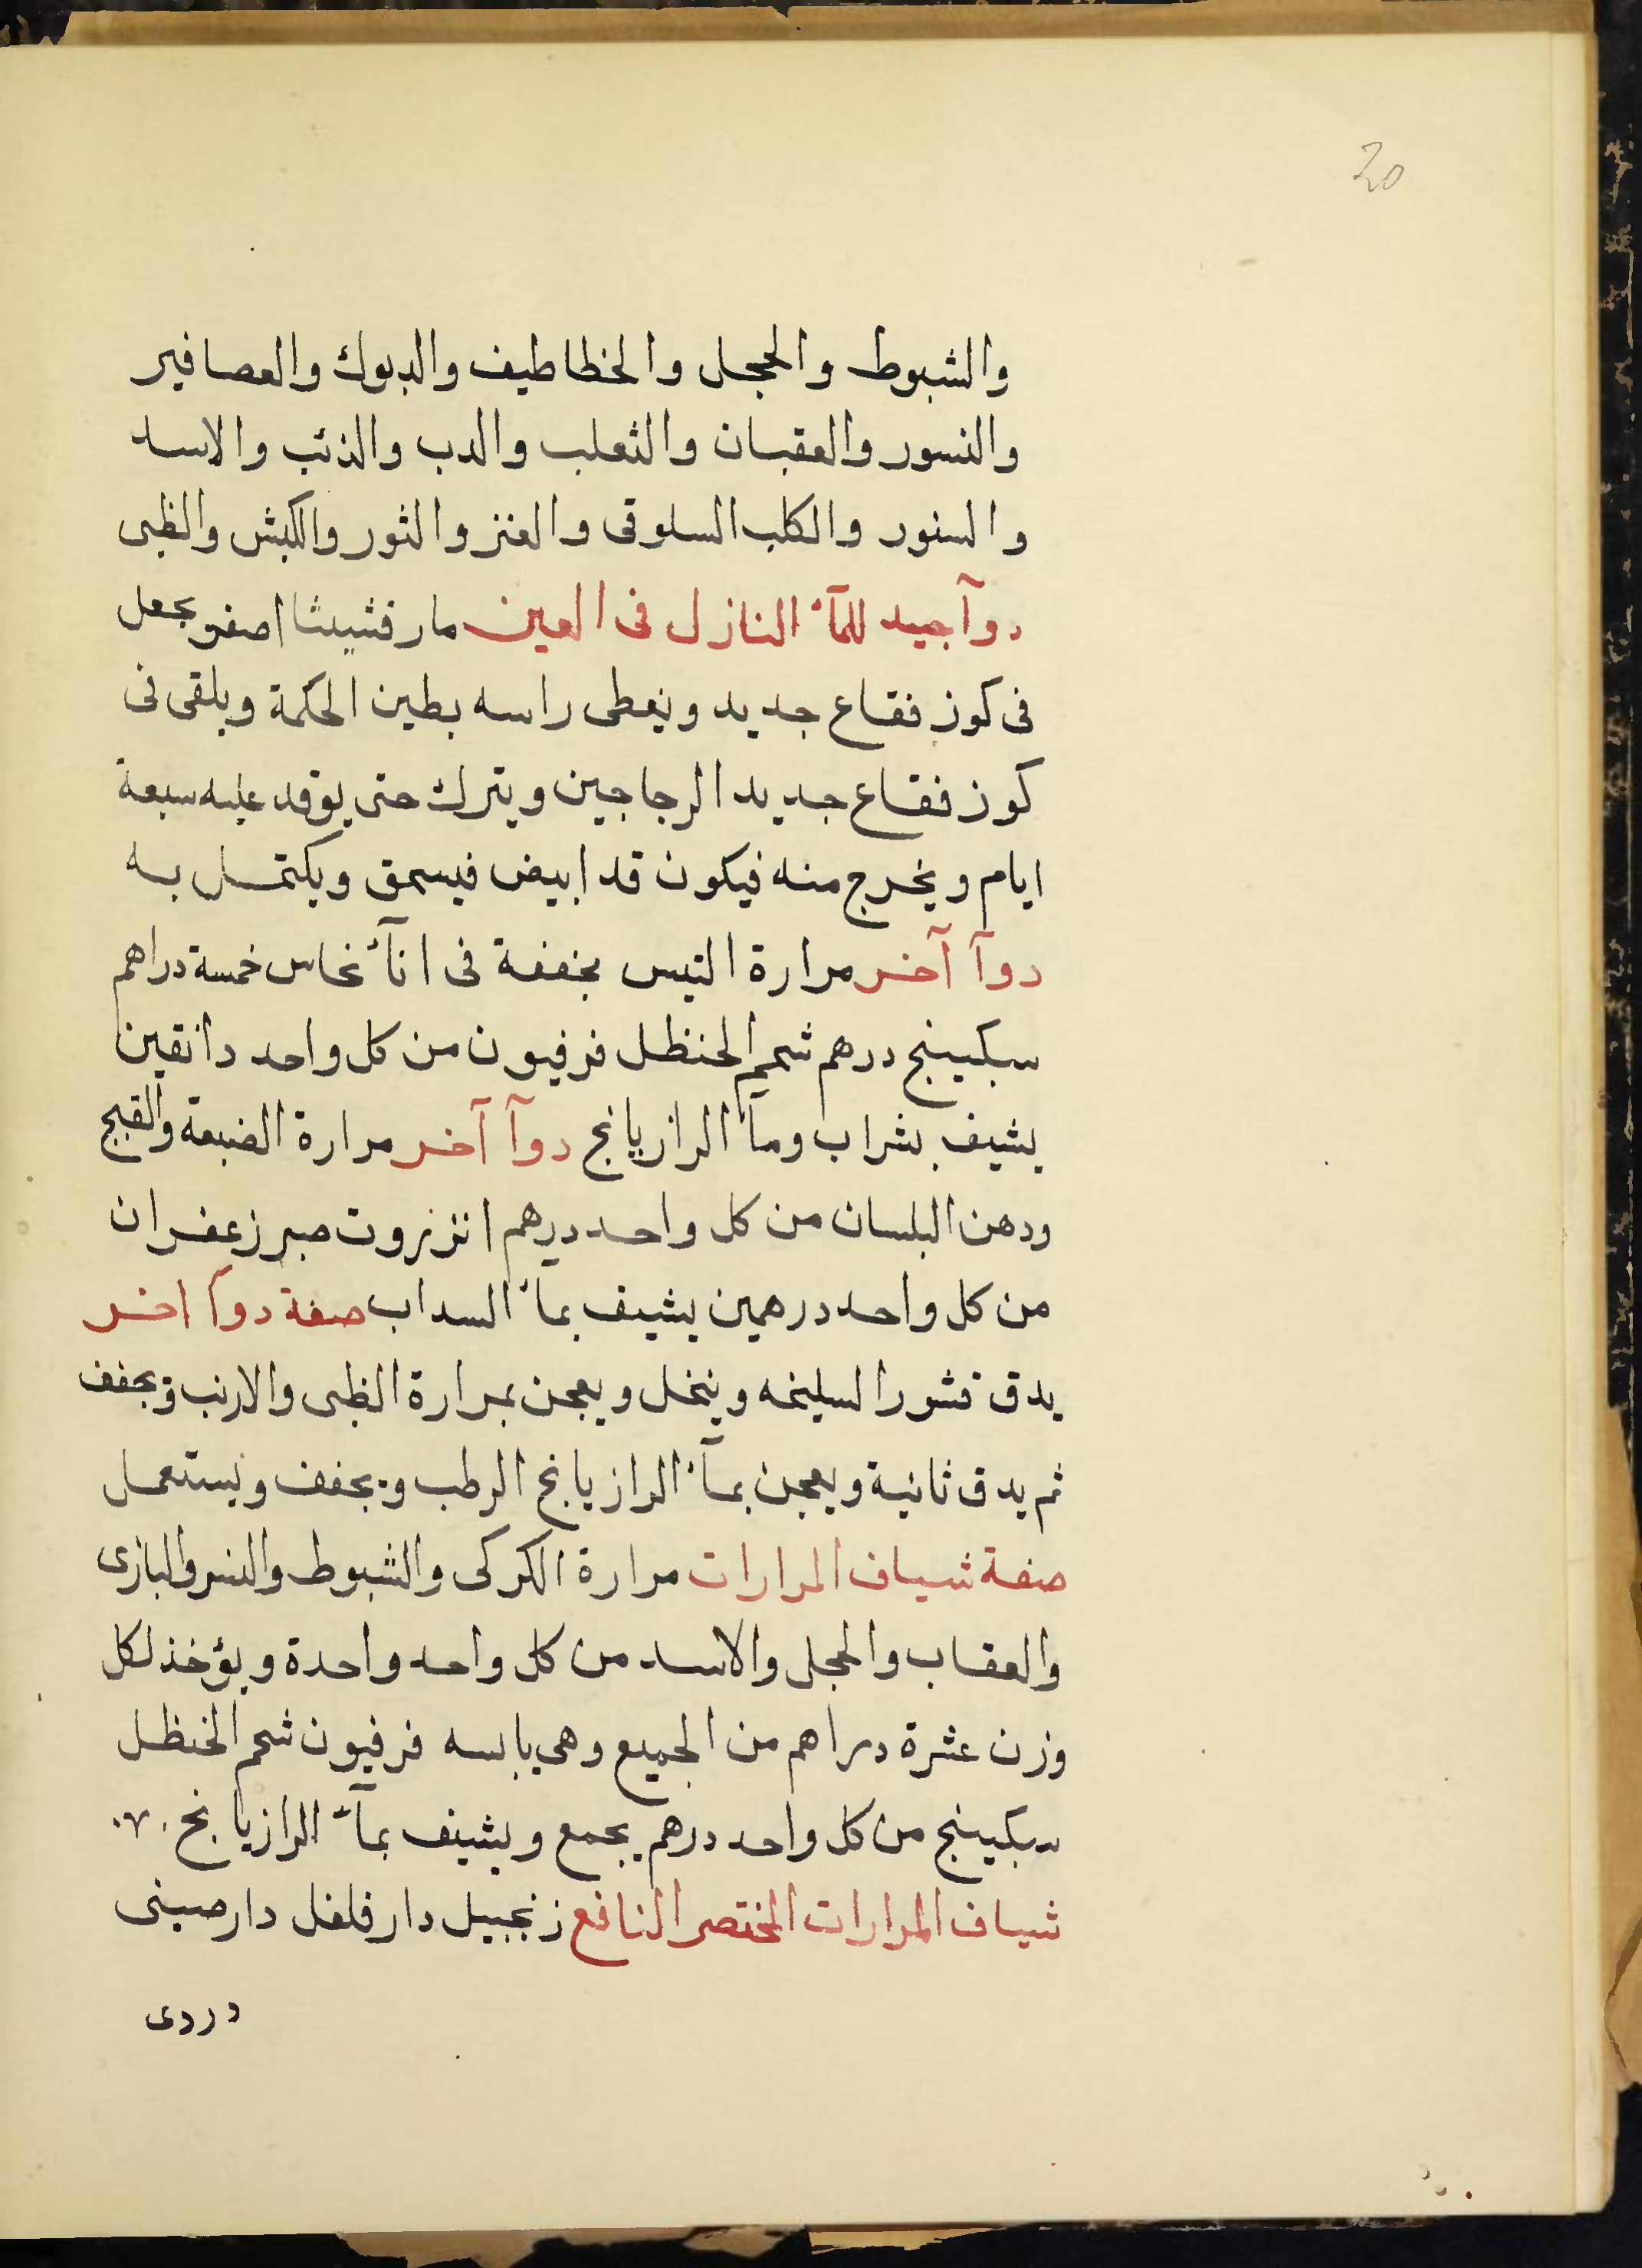 20
والشبوط والحجل والخطاطيف والديوك والعصافير
والنسور والعقبان والثعلب والدب والذئب والاسد
والسنور والكلب السلوقى والعنز والثور والكبش والظبى
دوآ جيد للمآء النازل فى العين مارقشيثا اصفر يجعل
فى كوز فقاع جديد ويغطى راسه بطين الحكمة ويلقى فى
كوز فقاع جديد الزجاجين ويترك حتى يوقد عليه سبعة
ايام ويخرج منه فيكون قد ابيض فيسحق ويكتحل به
دوآ آخر مرارة التيس مجففة فى انآء نحاس خمسة دراهم
سكبينج درهم شحم الحنظل فرفيون من كل واحد دانقين
يشيف بشراب ومآء الرازيانج دوآ آخر مرارة الضبعة والقبج
ودهن البلسان من كل واحد درهم انزروت صبر زعفران
من كل واحد درهمين يشيف بمآء السداب صفة دوآ اخر
يدق قشور السليخه وينخل ويعجن بمرارة الظبى والارنب ويجفف
ثم يدق ثانية ويعجن بمآء الرازيانج الرطب ويجفف ويستعمل
صفة شياف المرارات مرارة الكركى والشبوط والنسر والبازى
والعقاب والحجل والاسد من كل واحد واحدة ويؤخذ لكل
وزن عشرة دراهم من الجميع وهى يابسه فرفيون شحم الخنظل
سكبينج من كل واحد درهم يجمع ويشيف بمآء الرازيانج
شياف المرارات المختصر النافع زنجبيل دارفلفل دارصينى
دردى